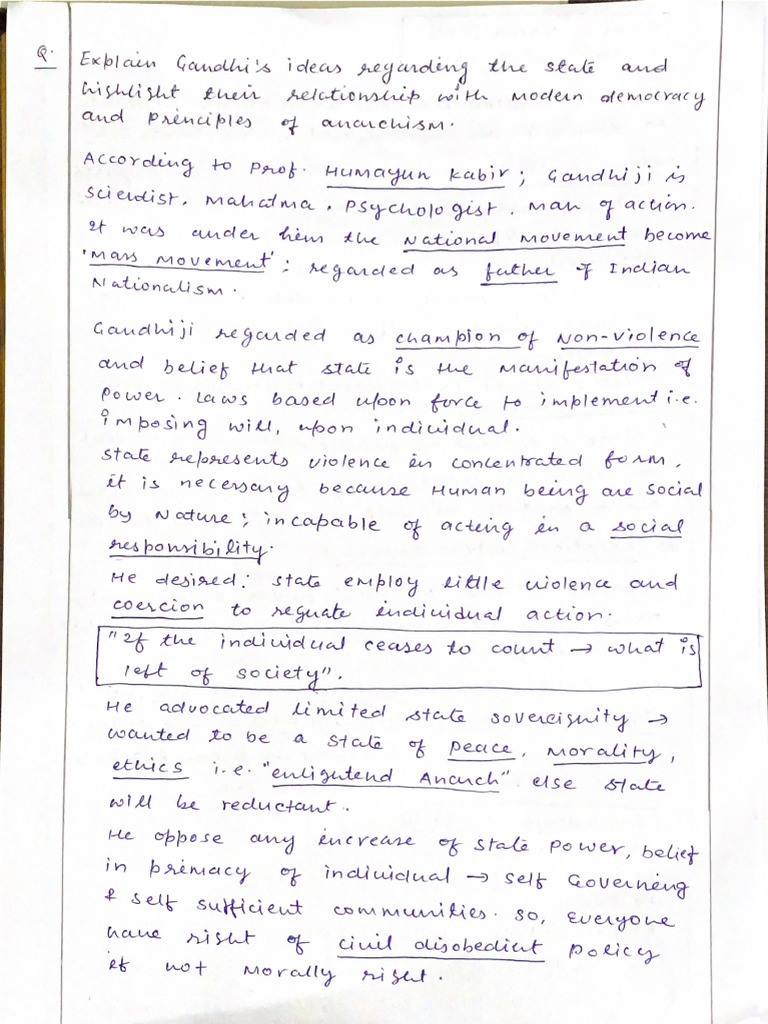 Q. Explain Gandhi's ideas regarding the state and
highlight their relationship with modern democracy
and principles of anarchism.
According to Prof. Humayun Kabir; Gandhiji is
Scientist, Mahatma, Psychologist, Man of action.
It was under him the National Movement become
'Mass Movement'; regarded as father of Indian
Nationalism.
Gandhiji regarded as champion of Non-violence
and belief that state is the manifestation of
Power. Laws based upon force to implement i.e.
imposing will, upon individual.
State represents violence in concentrated form,
it is necessary because Human being are social
by Nature; incapable of acting in a social
responsibility.
He desired: State employ little violence and
coercion to reguate individual action.
"If the individual ceases to count → what is
left of society".
He advocated limited state sovereignity →
wanted to be a state of peace, morality,
ethics i.e. "enlightend Anarch" else state
will be reductant.
He oppose any increase of state power, belief
in primacy of individual → self Governing
& self sufficient communities. So, everyone
have right of civil disobedient policy
if not morally right.